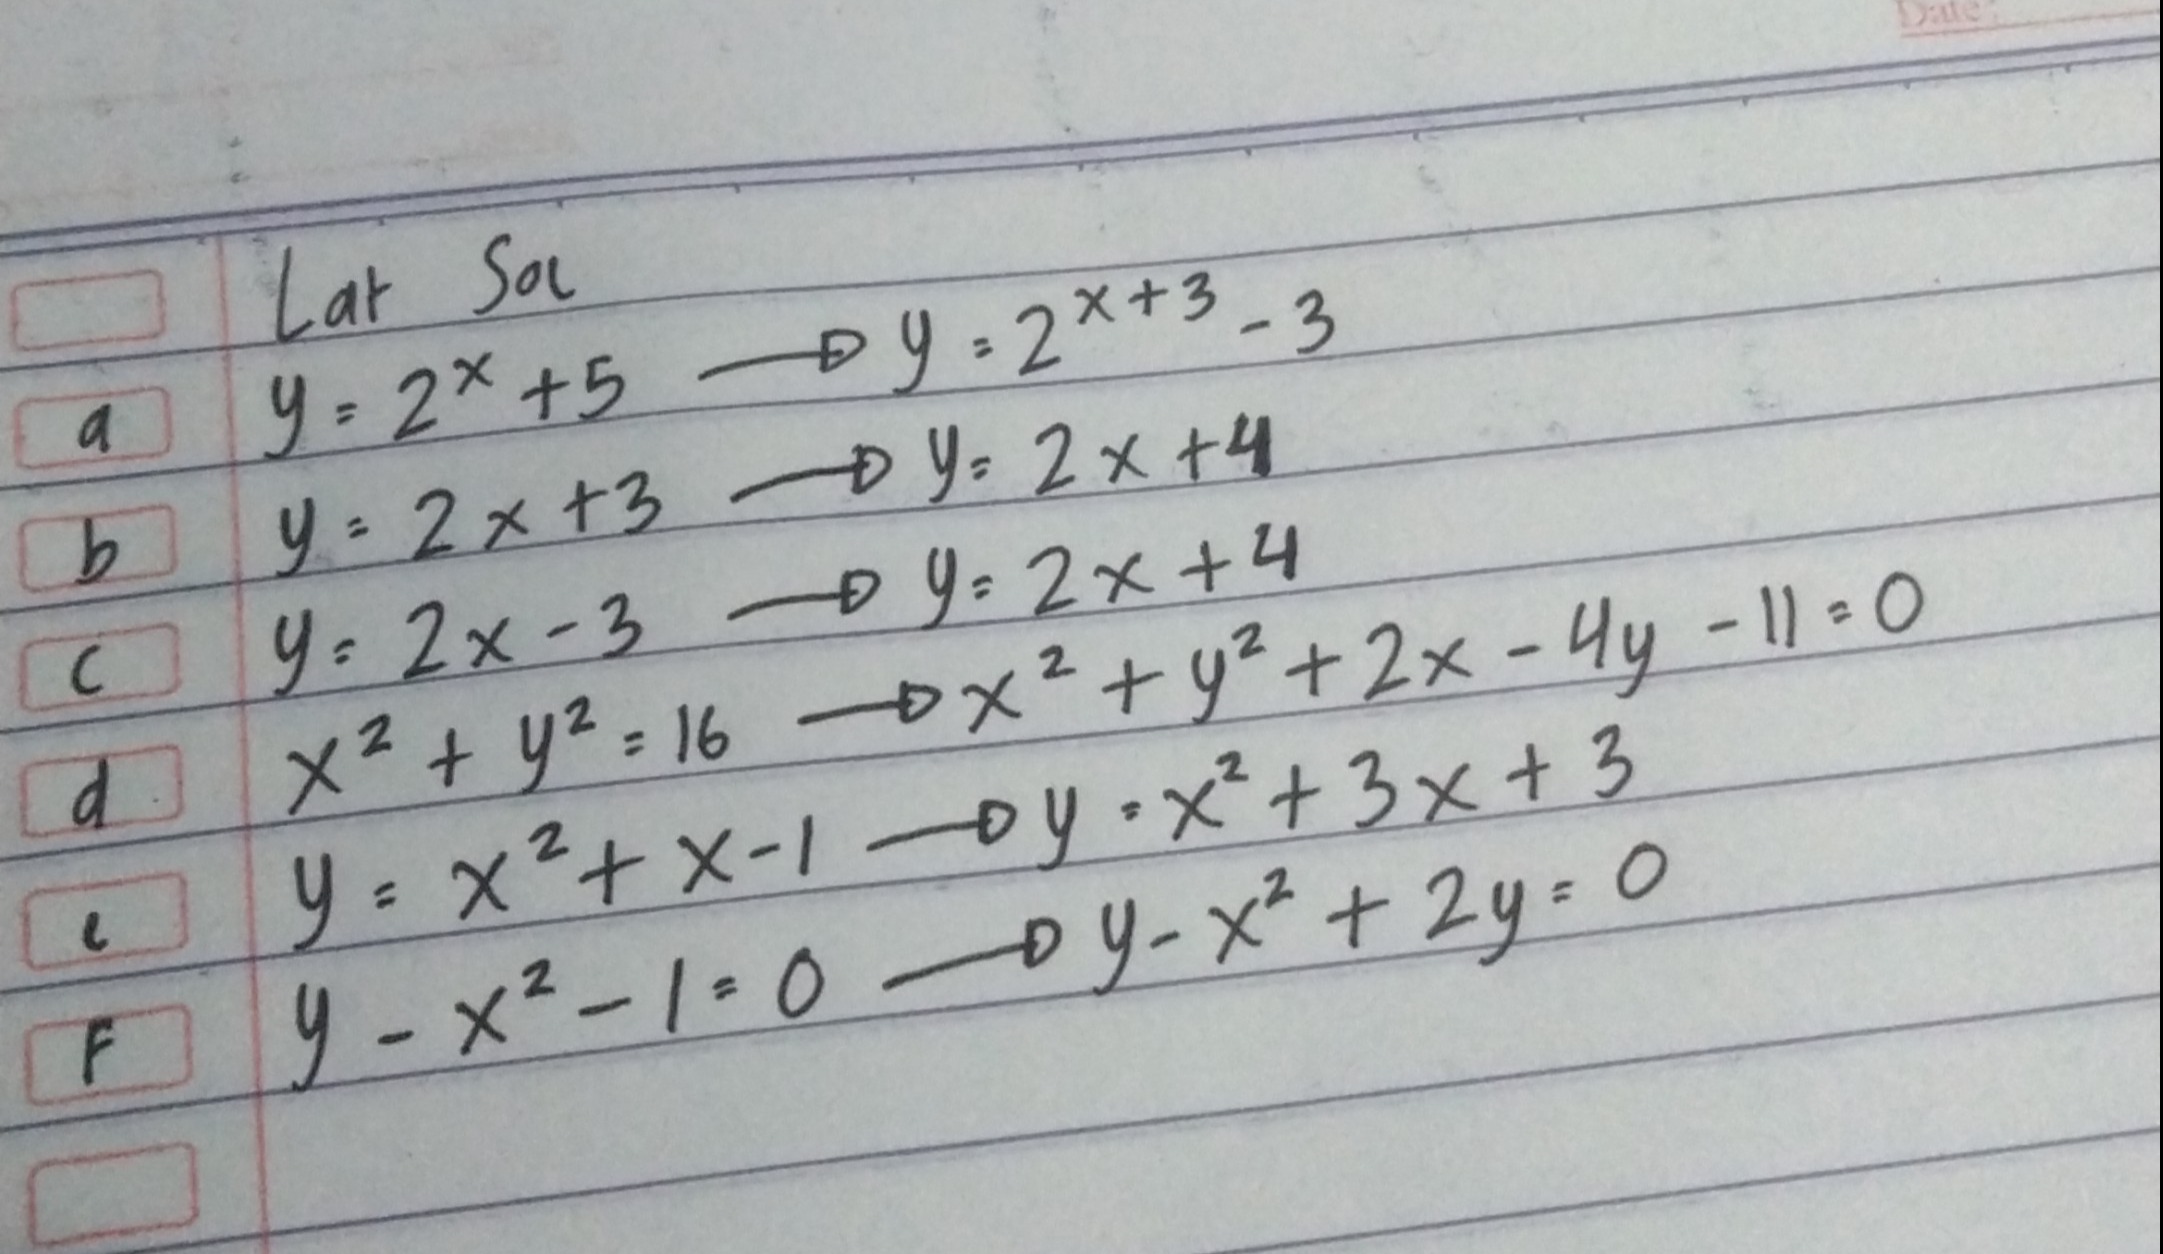 Date:
Lat Sol
a y = 2^x + 5 → y = 2^(x+3) - 3
b y = 2x + 3 → y = 2x + 4
c y = 2x - 3 → y = 2x + 4
d x² + y² = 16 → x² + y² + 2x - 4y - 11 = 0
e y = x² + x - 1 → y = x² + 3x + 3
F y - x² - 1 = 0 → y - x² + 2y = 0